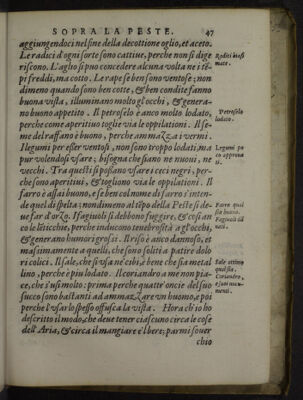 SOPRA LA PESTE. 47
aggiungendoci nel fine della decottione oglio, et aceto.
Le radici d'ogni sorte sono cattiue, perche non si dige
riscono. L'aglio si puo concedere alcuna volta ne i tẽ
pi freddi, ma cotto. Le rape se ben sono ventose; non
dimeno quando sono ben cotte, & ben condite fanno
buona vista, illuminano molto gl'occhi, & genera-
no buono appetito. Il petroselo è anco molto lodato,
perche come aperitiuo toglie via le oppilationi. Il se-
me del raffano è buono, perche ammazza i vermi.
I legumi per esser ventosi, non sono troppo lodati, ma
pur volendosi vsare; bisogna che siano ne nuoui, ne
vecchi. Tra questi si possano vsare i ceci negri, per-
che sono aperitiui, & togliono via le oppilationi. Il
farro è assai buono, e se ben col nome di farro s'inten-
de quel di spelta; nondimeno al tẽpo della Peste si de-
ue far d'orzo. I fagiuoli si debbono fuggire, & cosi an
co le lẽticchie, perche inducono tenebrosità a gl'occhi,
& generano humori grossi. Il riso è anco dannoso, et
massimamente a quelli, che sono soliti a patire dolo
ri colici. Il sale, che si vsa ne' cibi, è bene che sia metal
lino, perche è piu lodato. Il coriandro a me non pia-
ce, che s'usi molto: prima perche quattr'oncie del suo
succo sono bastanti ad ammazzare vn huomo, e poi
perche l'vsarlo spesso offusca la vista. Hora ch'io ho
descritto il modo, che deue tener ciascuno circa le cose
dell'Aria, & circa il mangiare e'l bere; parmi souer
chio
Radici biasi
mate.
Petroselo
lodato.
Legumi po
co approua
ti.
Farro qual
sia buono.
Fagiuoli dã
nati.
Sale ottimo
qual sia.
Coriandro,
e suoi nocu-
menti.